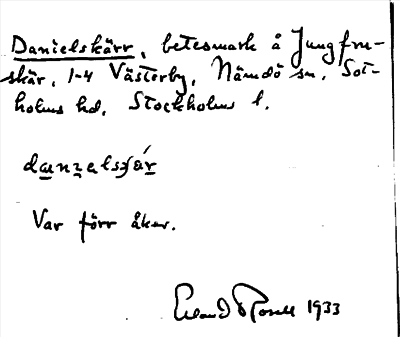 Danielskärr, betesmark å Jungfru-
skär, 1-4 Västerby, Nämdö sn, Sot-
holms hd, Stockholms l.
danzalsʃár
Var förr åker.
Erland Rosell 1933